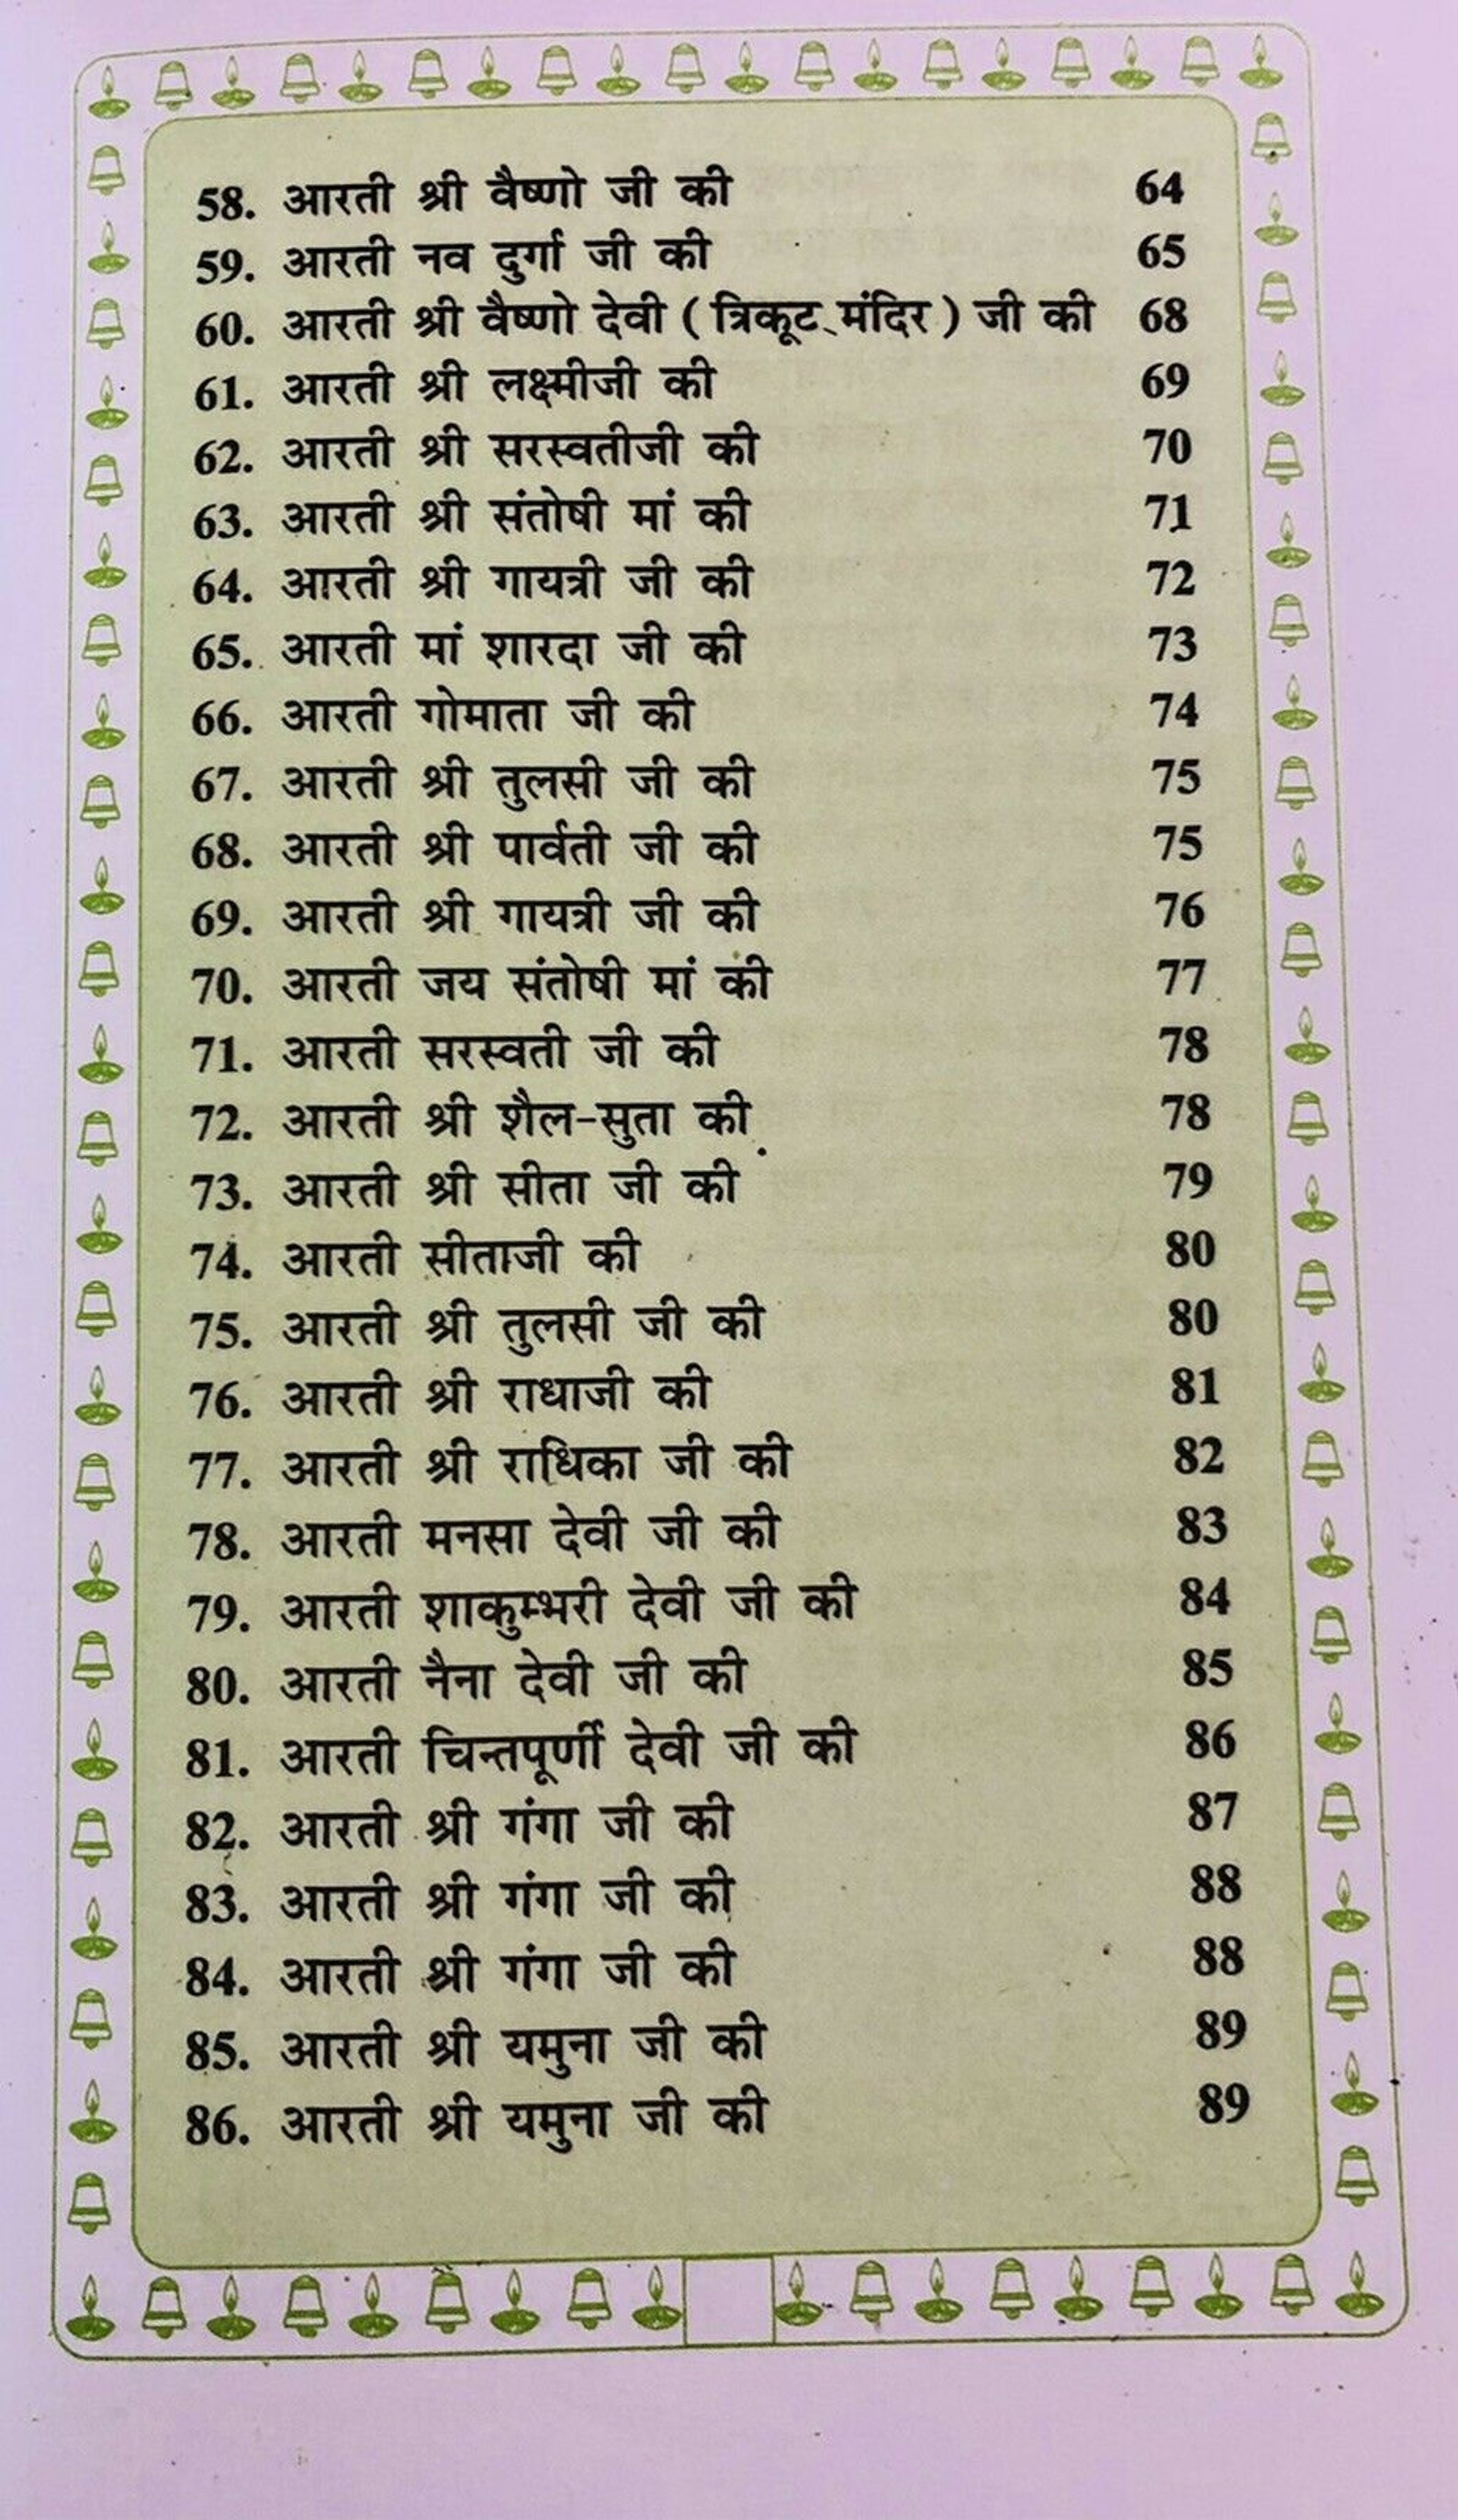 58. आरती श्री वैष्णो जी की 64
59. आरती नव दुर्गा जी की 65
60. आरती श्री वैष्णो देवी ( त्रिकूट मंदिर ) जी की 68
61. आरती श्री लक्ष्मीजी की 69
62. आरती श्री सरस्वतीजी की 70
63. आरती श्री संतोषी मां की 71
64. आरती श्री गायत्री जी की 72
65. आरती मां शारदा जी की 73
66. आरती गोमाता जी की 74
67. आरती श्री तुलसी जी की 75
68. आरती श्री पार्वती जी की 75
69. आरती श्री गायत्री जी की 76
70. आरती जय संतोषी मां की 77
71. आरती सरस्वती जी की 78
72. आरती श्री शैल-सुता की 78
73. आरती श्री सीता जी की 79
74. आरती सीताजी की 80
75. आरती श्री तुलसी जी की 80
76. आरती श्री राधाजी की 81
77. आरती श्री राधिका जी की 82
78. आरती मनसा देवी जी की 83
79. आरती शाकुम्भरी देवी जी की 84
80. आरती नैना देवी जी की 85
81. आरती चिन्तपूर्णी देवी जी की 86
82. आरती श्री गंगा जी की 87
83. आरती श्री गंगा जी की 88
84. आरती श्री गंगा जी की 88
85. आरती श्री यमुना जी की 89
86. आरती श्री यमुना जी की 89